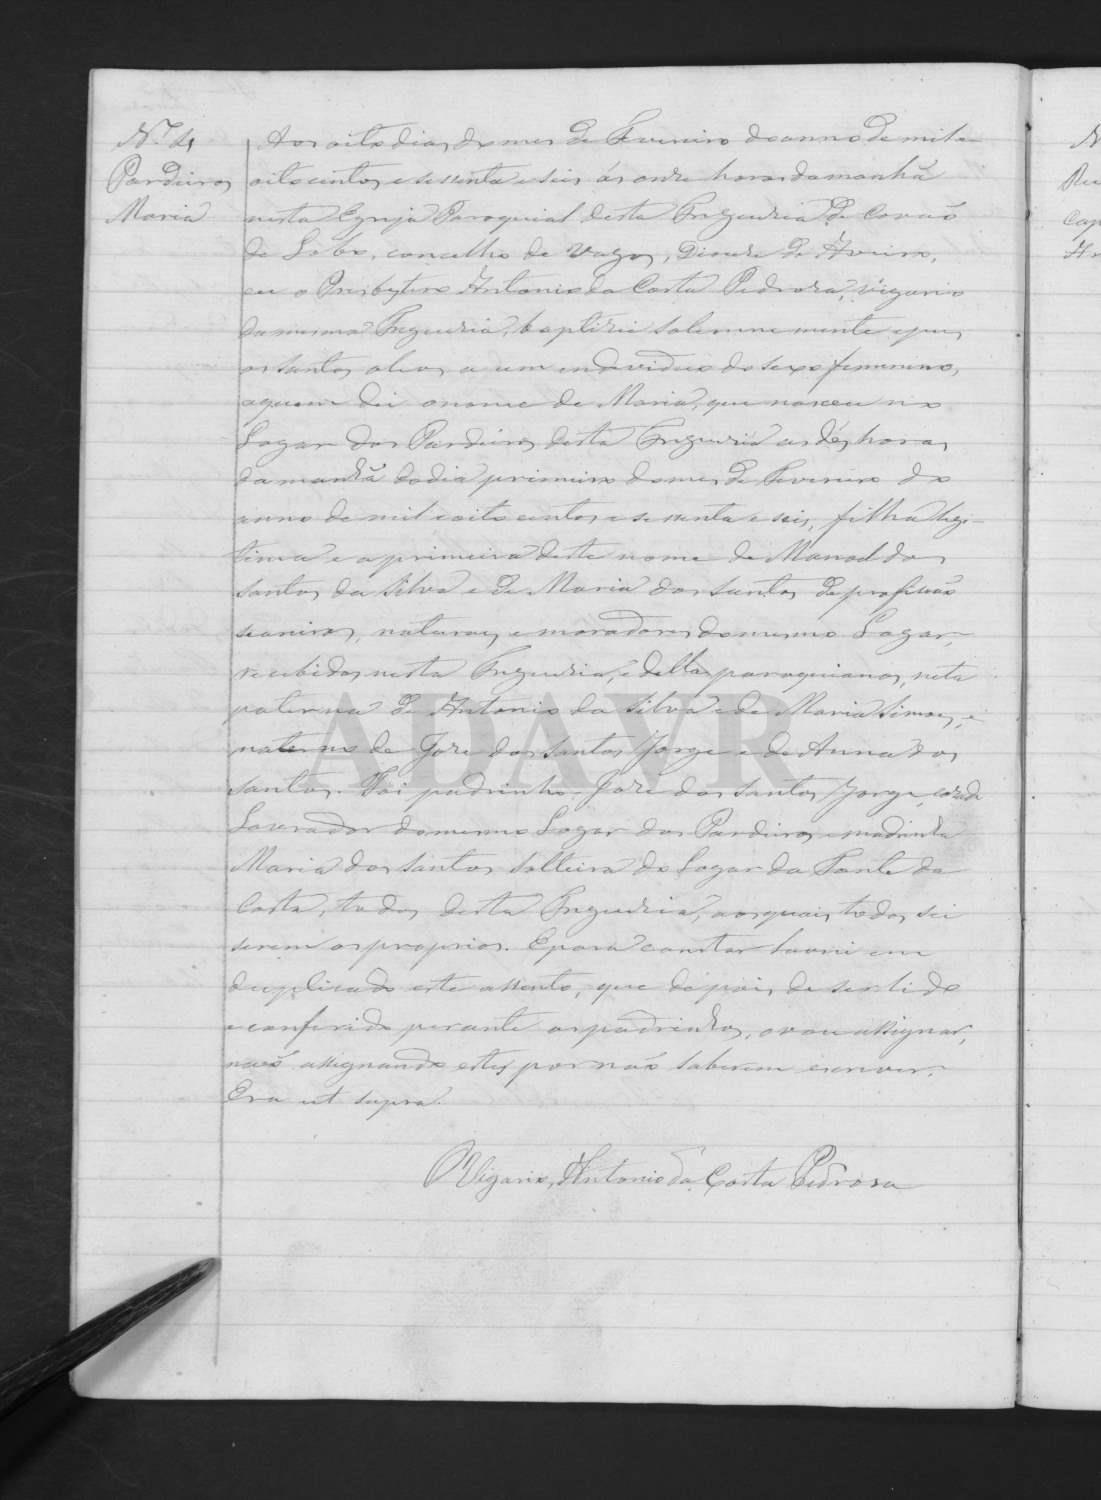 Nº 4
Pardeiros
Maria
Aos oito dias do mes de Fevereiro do anno de mil e
oito centos e sessenta e seis ás onze horas da manhã
nesta Egreja Paroquial desta Freguezia de Covaõ
do Lobo, concelho de Vagos, Diocese de Aveiro,
eu o Presbytero Antonio da Costa Pedrosa, Vigario
da mesma Freguezia, baptizei solemnemente e pus
os santos oleos a um individuo do sexo femenino,
a quem dei o nome de Maria, que nasceu no
Logar dos Pardeiros desta Freguezia as dés horas
da manhã do dia primeiro do mes de Fevereiro do
anno de mil e oito centos e sessenta e seis, filha legi-
tima e a primeira deste nome de Manoel dos
Santos da Silva e de Maria dos Santos de profissaõ
seareiros, naturaes e moradores do mesmo Logar,
recebidos nesta Freguezia, e della paroquianos, neta
paterna de Antonio da Silva e de Maria Simoes, e
materna de Jose dos Santos Jorge e de Anna dos
Santos. Foi padrinho Jose dos Santos Jorge, casado
Lavrador do mesmo Logar dos Pardeiros e madrinha
Maria dos Santos solteira do Logar da Fonte da
Costa, todos desta Freguezia, aos quais todos sei
serem os proprios. E para constar lavrei em
duplicado este assento, que depois de ser lido
e conferido perante os padrinhos, o vou assignar,
naõ assignando estes por naõ saberem escrever.
Era ut supra.
O Vigario, Antonio da Costa Pedrosa
ADAVR
N
Cap